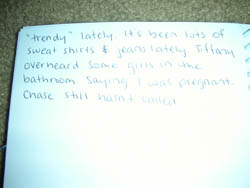 "trendy" lately. It's been lots of
sweat shirts & jeans lately. Tiffany
overheard some girls in the
bathroom saying I was pregnant.
Chase still hasn't called